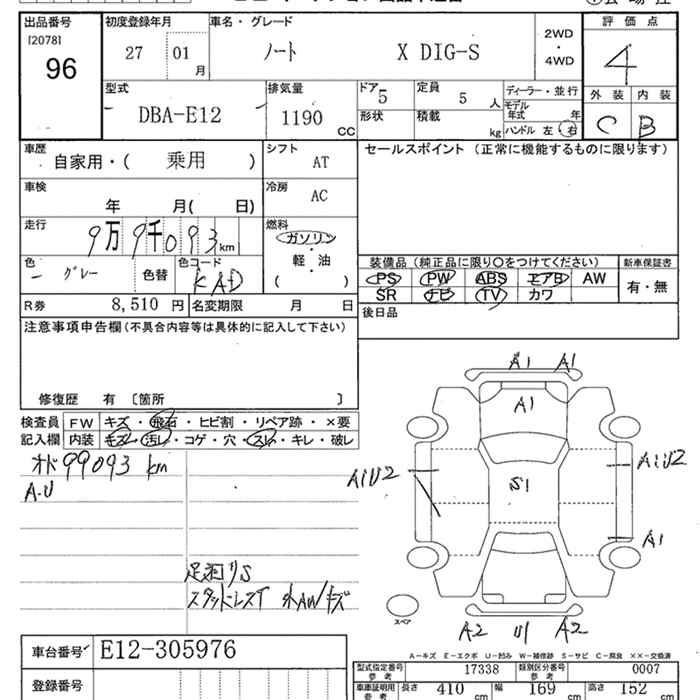 出品番号 初度登録年月 車名・グレード 2WD・4WD 評価点
[2078] 96 27 01月 ノート X DIG-S 4
型式 排気量 ドア 5 定員 5人 ディーラー・並行 外装 内装
DBA-E12 1190cc 形状 積載 kg モデル年式 年 C B
ハンドル 左 右
車歴 シフト セールスポイント (正常に機能するものに限ります)
自家用・( 乗用 ) AT
車検 冷房
年 月( 日) AC
走行 燃料
9万9千093km ガソリン
軽・油
( )
色 グレー 色替 色コード KAD
装備品 (純正品に限り○をつけてください) 新車保証書
PS PW ABS エアB AW 有・無
SR ナビ TV カワ
R券 8,510円 名変期限 月 日
後日品
注意事項申告欄(不具合内容等は具体的に記入して下さい)
修復歴 有 [箇所 ]
検査員 FW キズ・飛石・ヒビ割・リペア跡・×要
記入欄 内装 キズ・汚レ・コゲ・穴・スレ・キレ・破レ
オド99093km
A-U
足回りS
スタッドレスT 外AW/キズ
A1 A1
A1
A1U2 A1U2
S1
A1
スペア
A2 U1 A2
A-キズ E-エクボ U-凹み W-補修跡 S-サビ C-腐食 ××-交換済
車台番号 E12-305976
登録番号
型式指定番号 参考 17338 類別区分番号 参考 0007
車車証明用 参考 長さ 410cm 幅 169cm 高さ 152cm